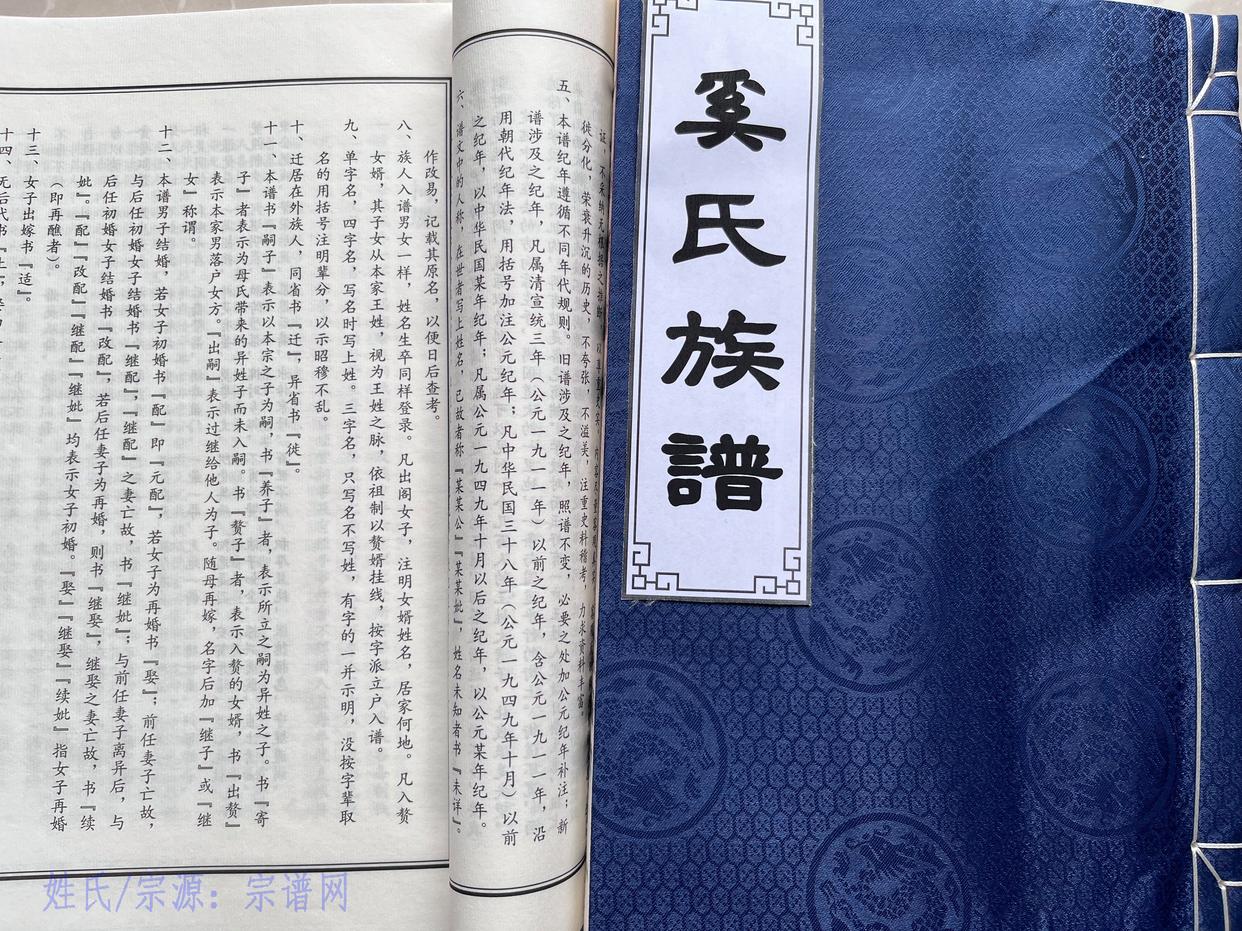 奚氏族譜
徒分化，荣衰升沉的历史，不夸张，不溢美，注重史料稽考，力求资料丰富。
五、本谱纪年遵循不同年代规则。旧谱涉及之纪年，照谱不变，必要之处加公元纪年补注；新
谱涉及之纪年，凡属清宣统三年（公元一九一一年）以前之纪年，含公元一九一一年，沿
用朝代纪年法，用括号加注公元纪年；凡中华民国三十八年（公元一九四九年十月）以前
之纪年，以中华民国某年纪年；凡属公元一九四九年十月以后之纪年，以公元某年纪年。
六、谱文中的人称，在世者写上姓名，已故者称『某某公』『某某妣』，姓名未知者书『未详』。
作改易，记载其原名，以便日后查考。
八、族人入谱男女一样，姓名生卒同样登录。凡出阁女子，注明女婿姓名，居家何地。凡入赘
女婿，其子女从本家王姓，视为王姓之脉，依祖制以赘婿挂线，按字派立户入谱。
九、单字名，四字名，写名时写上姓。三字名，只写名不写姓，有字的一并示明，没按字辈取
名的用括号注明辈分，以示昭穆不乱。
十、迁居在外族人，同省书『迁』，异省书『徙』。
十一、本谱书『嗣子』表示以本宗之子为嗣，书『养子』者，表示所立之嗣为异姓之子。书『寄
子』者表示为母氏带来的异姓子而未入嗣。书『赘子』者，表示入赘的女婿，书『出赘』
表示本家男落户女方。『出嗣』表示过继给他人为子。随母再嫁，名字后加『继子』或『继
女』称谓。
十二、本谱男子结婚，若女子初婚书『配』即『元配』，若女子为再婚书『娶』；前任妻子亡故，
与后任初婚女子结婚书『继配』，『继配』之妻亡故，书『继妣』；与前任妻子离异后，与
后任初婚女子结婚书『改配』，若后任妻子为再婚，则书『继娶』，继娶之妻亡故，书『续
妣』。『配』『改配』『继配』『继妣』均表示女子初婚。『娶』『继娶』『续妣』指女子再婚
（即再醮者）。
十三、女子出嫁书『适』。
十四、无后代书『止』，
姓氏/宗源：宗谱网